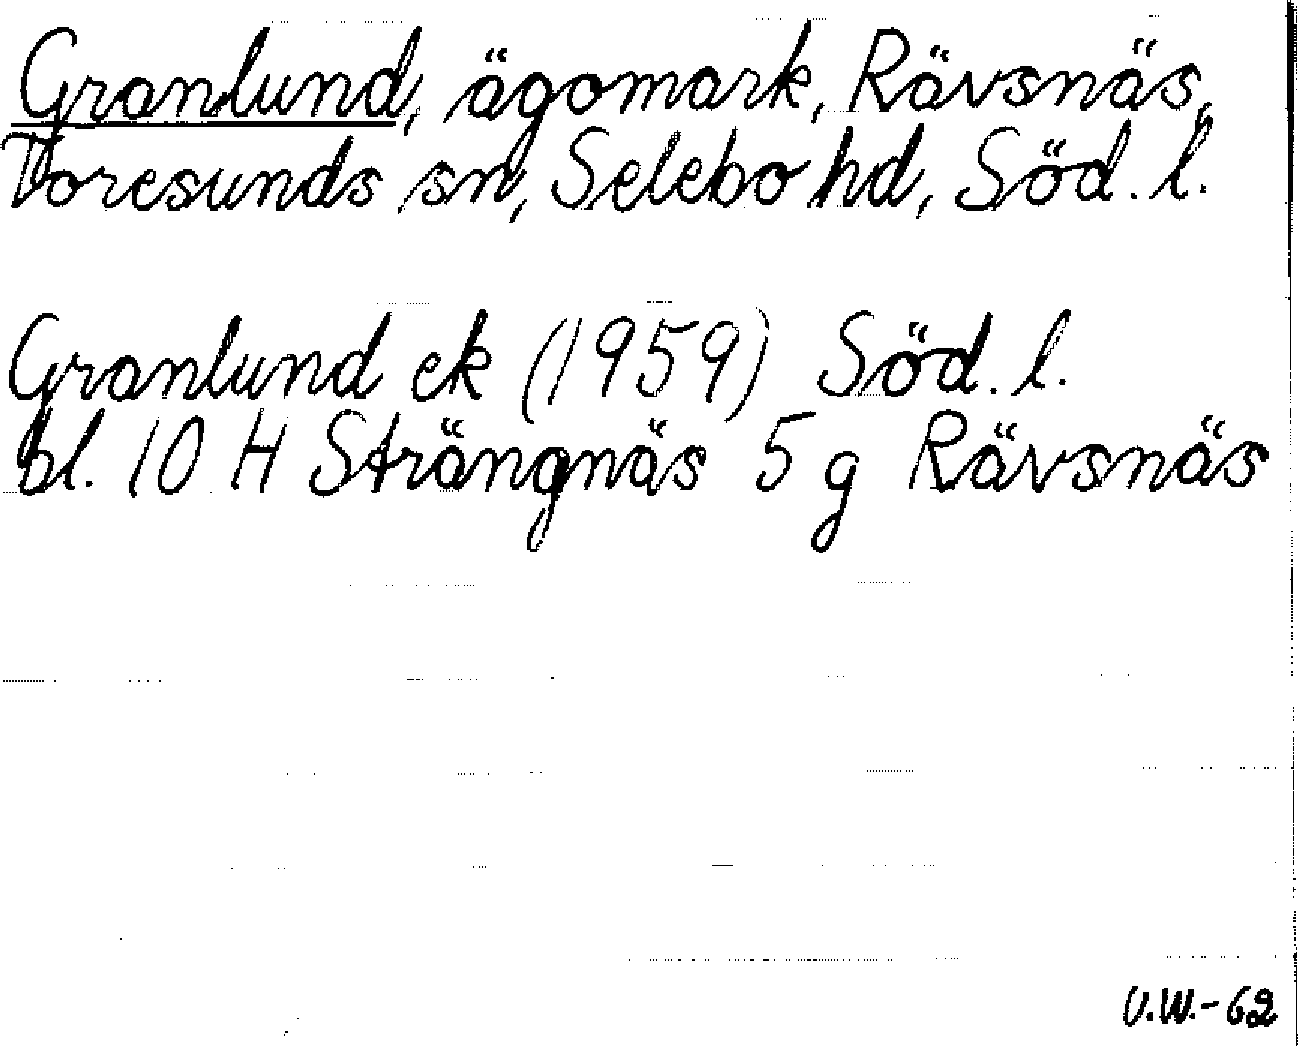 Granlund, ägomark, Rävsnäs,
Toresunds sn, Selebo hd, Söd. l.
Granlund ek (1959) Söd. l.
bl. 10 H Strängnäs 5 g Rävsnäs
U.W.-62